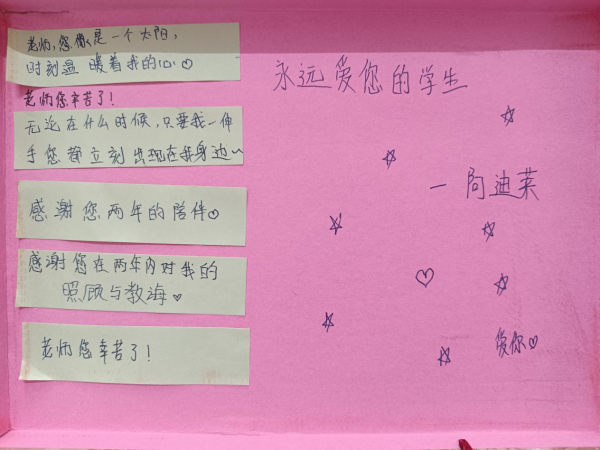 老师，您像是一个太阳，
时刻温暖着我的心♡
老师您辛苦了！
无论在什么时候，只要我一伸
手您都立刻出现在我身边~
感谢您两年的陪伴♡
感谢您在两年内对我的
照顾与教海♡
老师您幸苦了！
永远爱您的学生
一 向迪菜
爱你♡